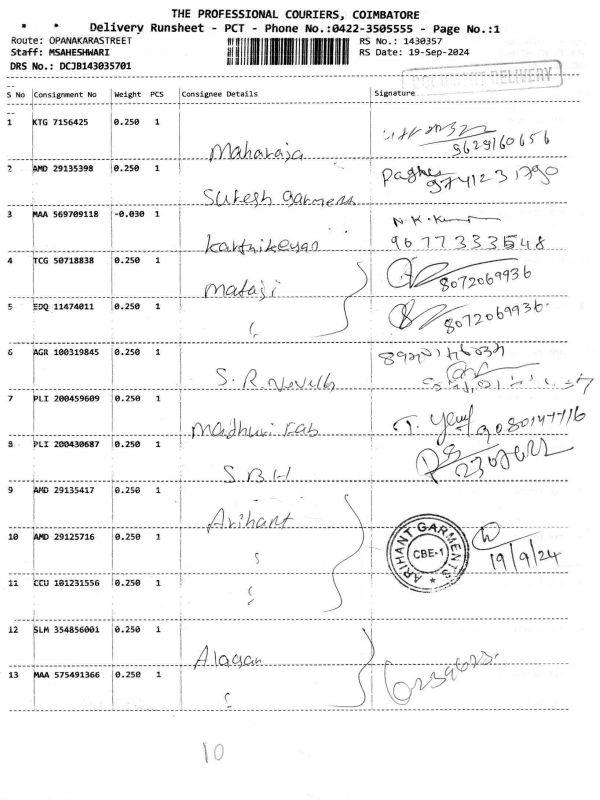 THE PROFESSIONAL COURIERS, COIMBATORE
* * Delivery Runsheet - PCT - Phone No.:0422-3505555 - Page No.:1
Route: OPANAKARASTREET RS No.: 1430357
Staff: MSAHESHWARI RS Date: 19-Sep-2024
DRS No.: DCJB143035701
DELIVERY
S No Consignment No Weight PCS Consignee Details Signature
1 KTG 7156425 0.250 1
Maharaja 9629160656
2 AMD 29135398 0.250 1
Suresh Garments 9741231790
3 MAA 569709118 -0.030 1 N.K.Kumar
Karthikeyan 9677333548
4 TCG 50718838 0.250 1
Mataji 8072069936
5 EDQ 11474011 0.250 1
8072069936.
6 AGR 100319845 0.250 1
S.R.
7 PLI 200459609 0.250 1
Madhuri Fab 9080147716
8 PLI 200430687 0.250 1
S.B.H
9 AMD 29135417 0.250 1
Arihant
10 AMD 29125716 0.250 1
ARIHANT GARMENTS
CBE-1
19/9/24
11 CCU 101231556 0.250 1
12 SLM 354856001 0.250 1
Alagan
13 MAA 575491366 0.250 1
10